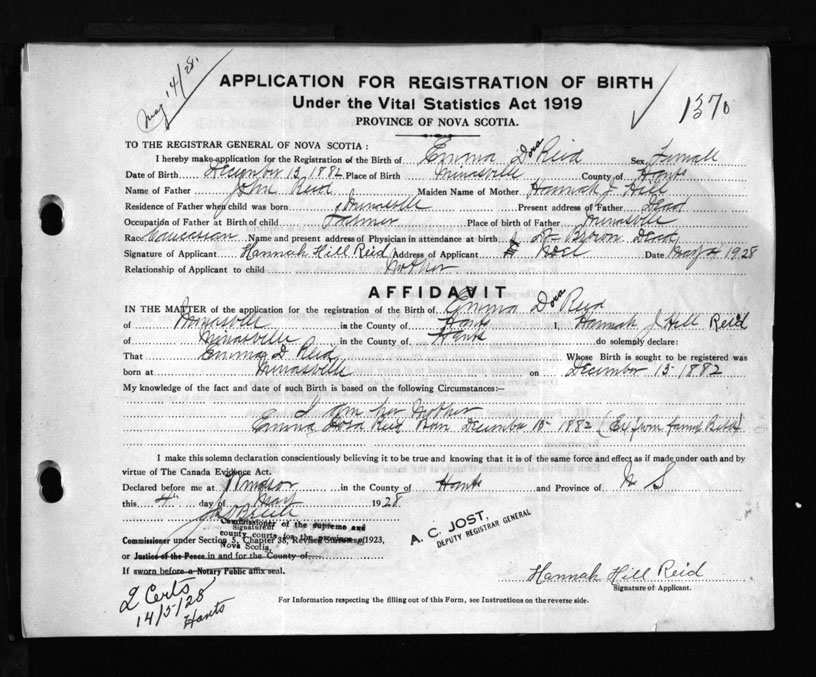 May 14/28.
APPLICATION FOR REGISTRATION OF BIRTH
Under the Vital Statistics Act 1919
PROVINCE OF NOVA SCOTIA.
1370
TO THE REGISTRAR GENERAL OF NOVA SCOTIA :
I hereby make application for the Registration of the Birth of Emma Dora Reid Sex Female
Date of Birth December 15 1882 Place of Birth Minasville County of Hants
Name of Father John Reid Maiden Name of Mother Hannah J Hill
Residence of Father when child was born Minasville Present address of Father Dead
Occupation of Father at Birth of child Farmer Place of birth of Father Minasville
Race Caucasian Name and present address of Physician in attendance at birth Dead
Signature of Applicant Hannah Hill Reid Address of Applicant Date May 4 1928
Relationship of Applicant to child Mother
AFFIDAVIT
IN THE MATTER of the application for the registration of the Birth of Emma Dora Reid
of Minasville in the County of Hants I, Hannah J Hill Reid
of Minasville in the County of Hants do solemnly declare:
That Emma D Reid Whose Birth is sought to be registered was
born at Minasville on December 15 1882
My knowledge of the fact and date of such Birth is based on the following Circumstances:-
I am her Mother
Emma Dora Reid Born December 15 1882 (Ex from family Bible)
I make this solemn declaration conscientiously believing it to be true and knowing that it is of the same force and effect as if made under oath and by
virtue of The Canada Evidence Act.
Declared before me at Windsor in the County of Hants and Province of N S
this 4th day of May 1928
Signature of
Commissioner of the supreme and
county courts for the province of
Nova Scotia
Commissioner under Section 5, Chapter 38, Revised Statutes, 1923,
or Justice of the Peace in and for the County of
If sworn before a Notary Public affix seal.
A. C. JOST.
DEPUTY REGISTRAR GENERAL
Hannah Hill Reid
Signature of Applicant.
2 Certs
14/5/28
Hants
For Information respecting the filling out of this Form, see Instructions on the reverse side.